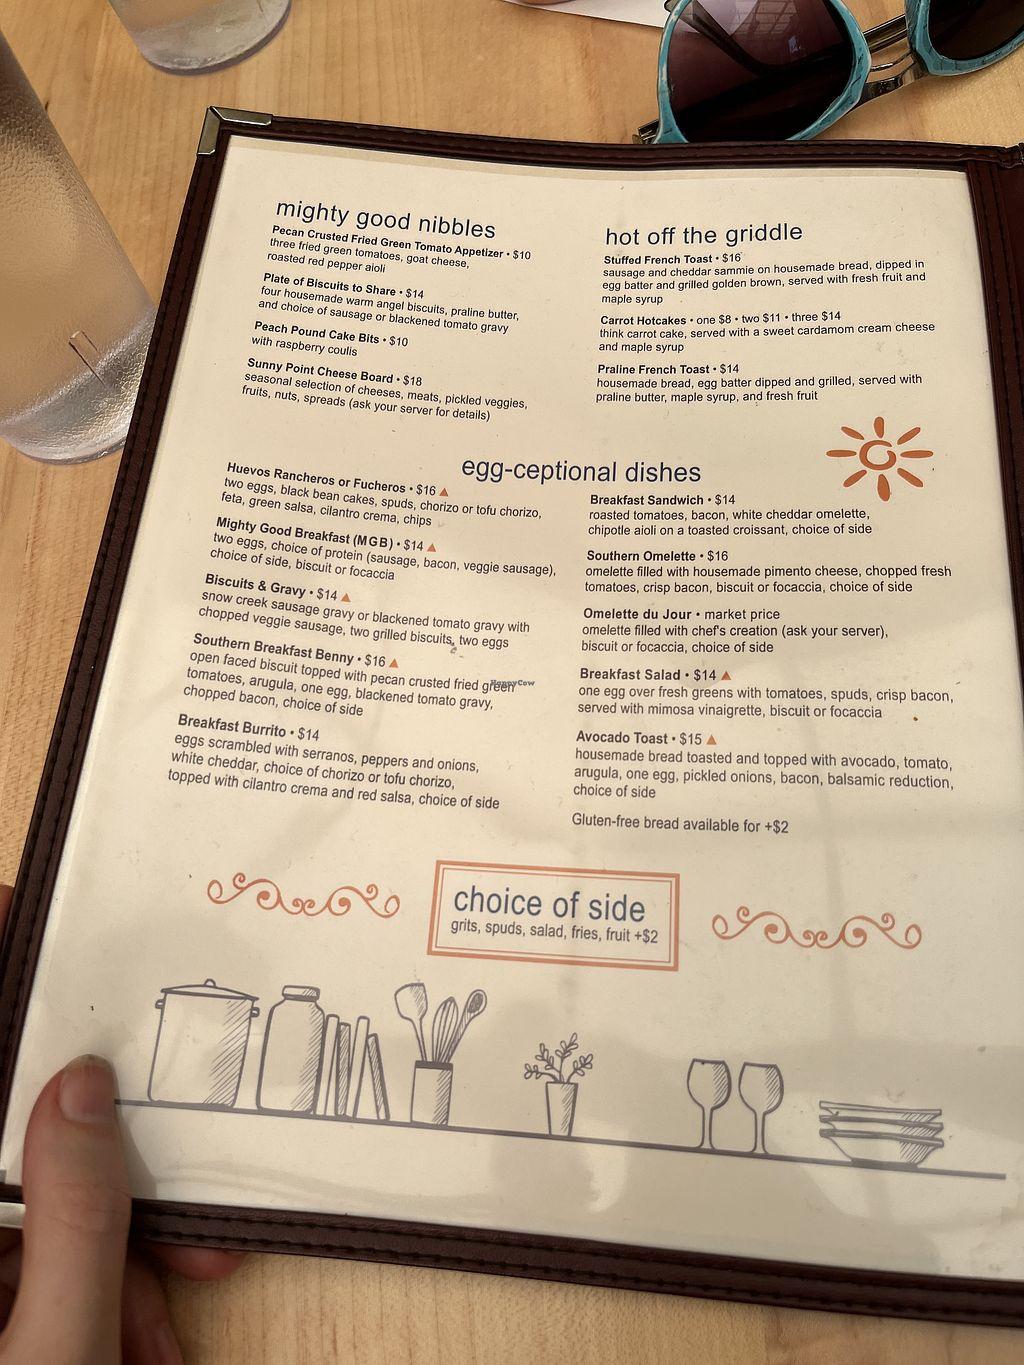 mighty good nibbles
Pecan Crusted Fried Green Tomato Appetizer • $10
three fried green tomatoes, goat cheese,
roasted red pepper aioli
Plate of Biscuits to Share • $14
four housemade warm angel biscuits, praline butter,
and choice of sausage or blackened tomato gravy
Peach Pound Cake Bits • $10
with raspberry coulis
Sunny Point Cheese Board • $18
seasonal selection of cheeses, meats, pickled veggies,
fruits, nuts, spreads (ask your server for details)
hot off the griddle
Stuffed French Toast • $16
sausage and cheddar sammie on housemade bread, dipped in
egg batter and grilled golden brown, served with fresh fruit and
maple syrup
Carrot Hotcakes • one $8 • two $11 • three $14
think carrot cake, served with a sweet cardamom cream cheese
and maple syrup
Praline French Toast • $14
housemade bread, egg batter dipped and grilled, served with
praline butter, maple syrup, and fresh fruit
egg-ceptional dishes
Huevos Rancheros or Fucheros • $16 ▲
two eggs, black bean cakes, spuds, chorizo or tofu chorizo,
feta, green salsa, cilantro crema, chips
Mighty Good Breakfast (MGB) • $14 ▲
two eggs, choice of protein (sausage, bacon, veggie sausage),
choice of side, biscuit or focaccia
Biscuits & Gravy • $14 ▲
snow creek sausage gravy or blackened tomato gravy with
chopped veggie sausage, two grilled biscuits, two eggs
Southern Breakfast Benny • $16 ▲
open faced biscuit topped with pecan crusted fried green
tomatoes, arugula, one egg, blackened tomato gravy,
chopped bacon, choice of side
Breakfast Burrito • $14
eggs scrambled with serranos, peppers and onions,
white cheddar, choice of chorizo or tofu chorizo,
topped with cilantro crema and red salsa, choice of side
Breakfast Sandwich • $14
roasted tomatoes, bacon, white cheddar omelette,
chipotle aioli on a toasted croissant, choice of side
Southern Omelette • $16
omelette filled with housemade pimento cheese, chopped fresh
tomatoes, crisp bacon, biscuit or focaccia, choice of side
Omelette du Jour • market price
omelette filled with chef's creation (ask your server),
biscuit or focaccia, choice of side
Breakfast Salad • $14 ▲
one egg over fresh greens with tomatoes, spuds, crisp bacon,
served with mimosa vinaigrette, biscuit or focaccia
Avocado Toast • $15 ▲
housemade bread toasted and topped with avocado, tomato,
arugula, one egg, pickled onions, bacon, balsamic reduction,
choice of side
Gluten-free bread available for +$2
HappyCow
choice of side
grits, spuds, salad, fries, fruit +$2